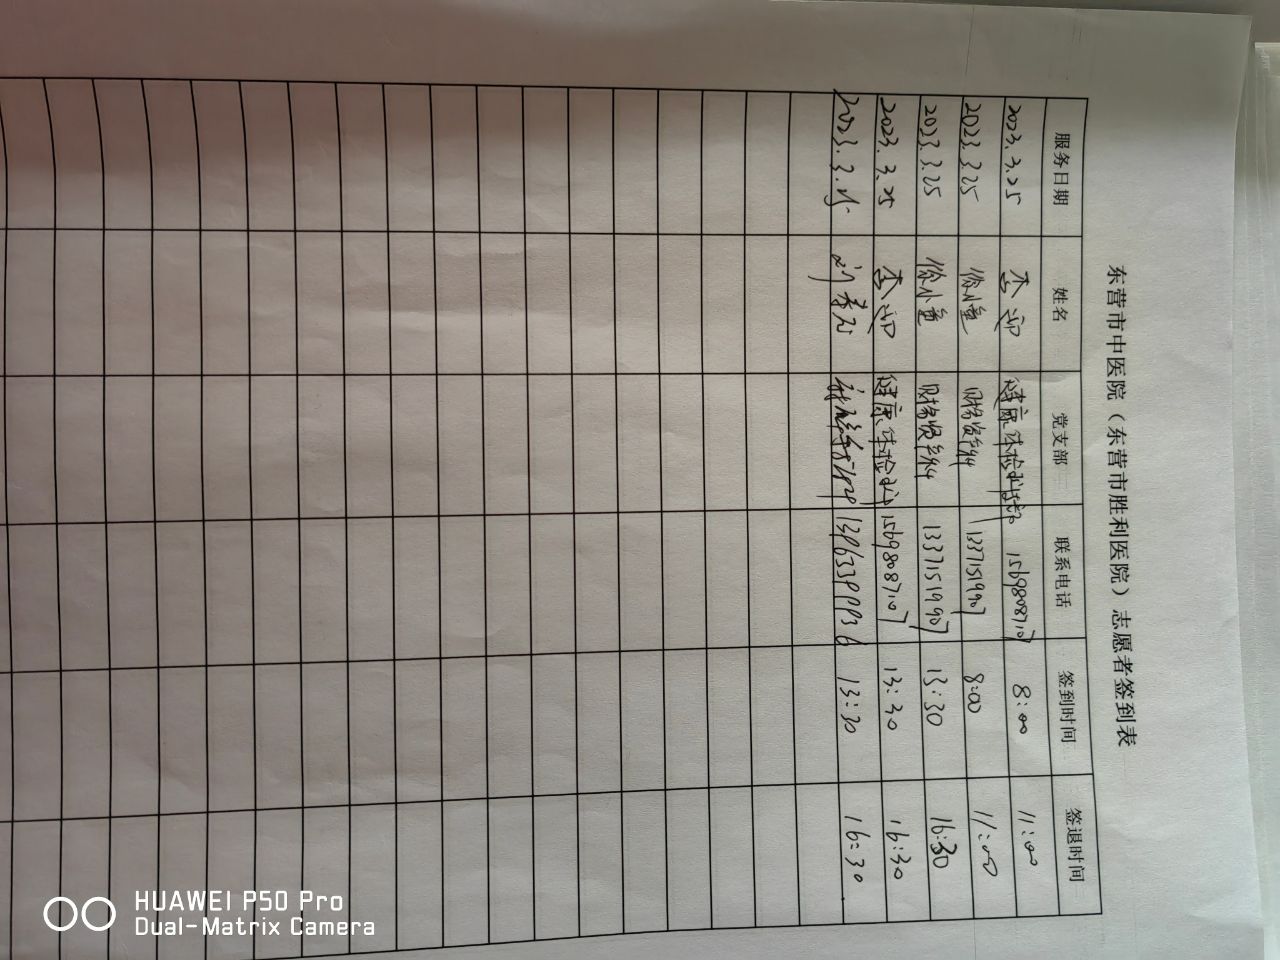 东营市中医院（东营市胜利医院）志愿者签到表
服务日期 姓名 党支部 联系电话 签到时间 签退时间
2023.3.25 李 健康体检科 15698087107 8:00 11:00
2023.3.25 徐小童 财务资产科 13371519907 8:00 11:00
2023.3.25 徐小童 财务资产科 13371519907 13:30 16:30
2023.3.25 李 健康体检科 15698087107 13:30 16:30
2023.3.25 13:30 16:30
HUAWEI P50 Pro
Dual-Matrix Camera